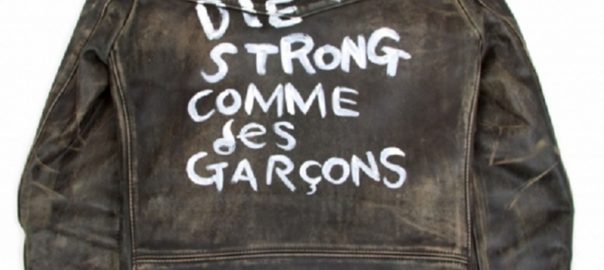 DIE
STRONG
COMME
des
GARÇONS